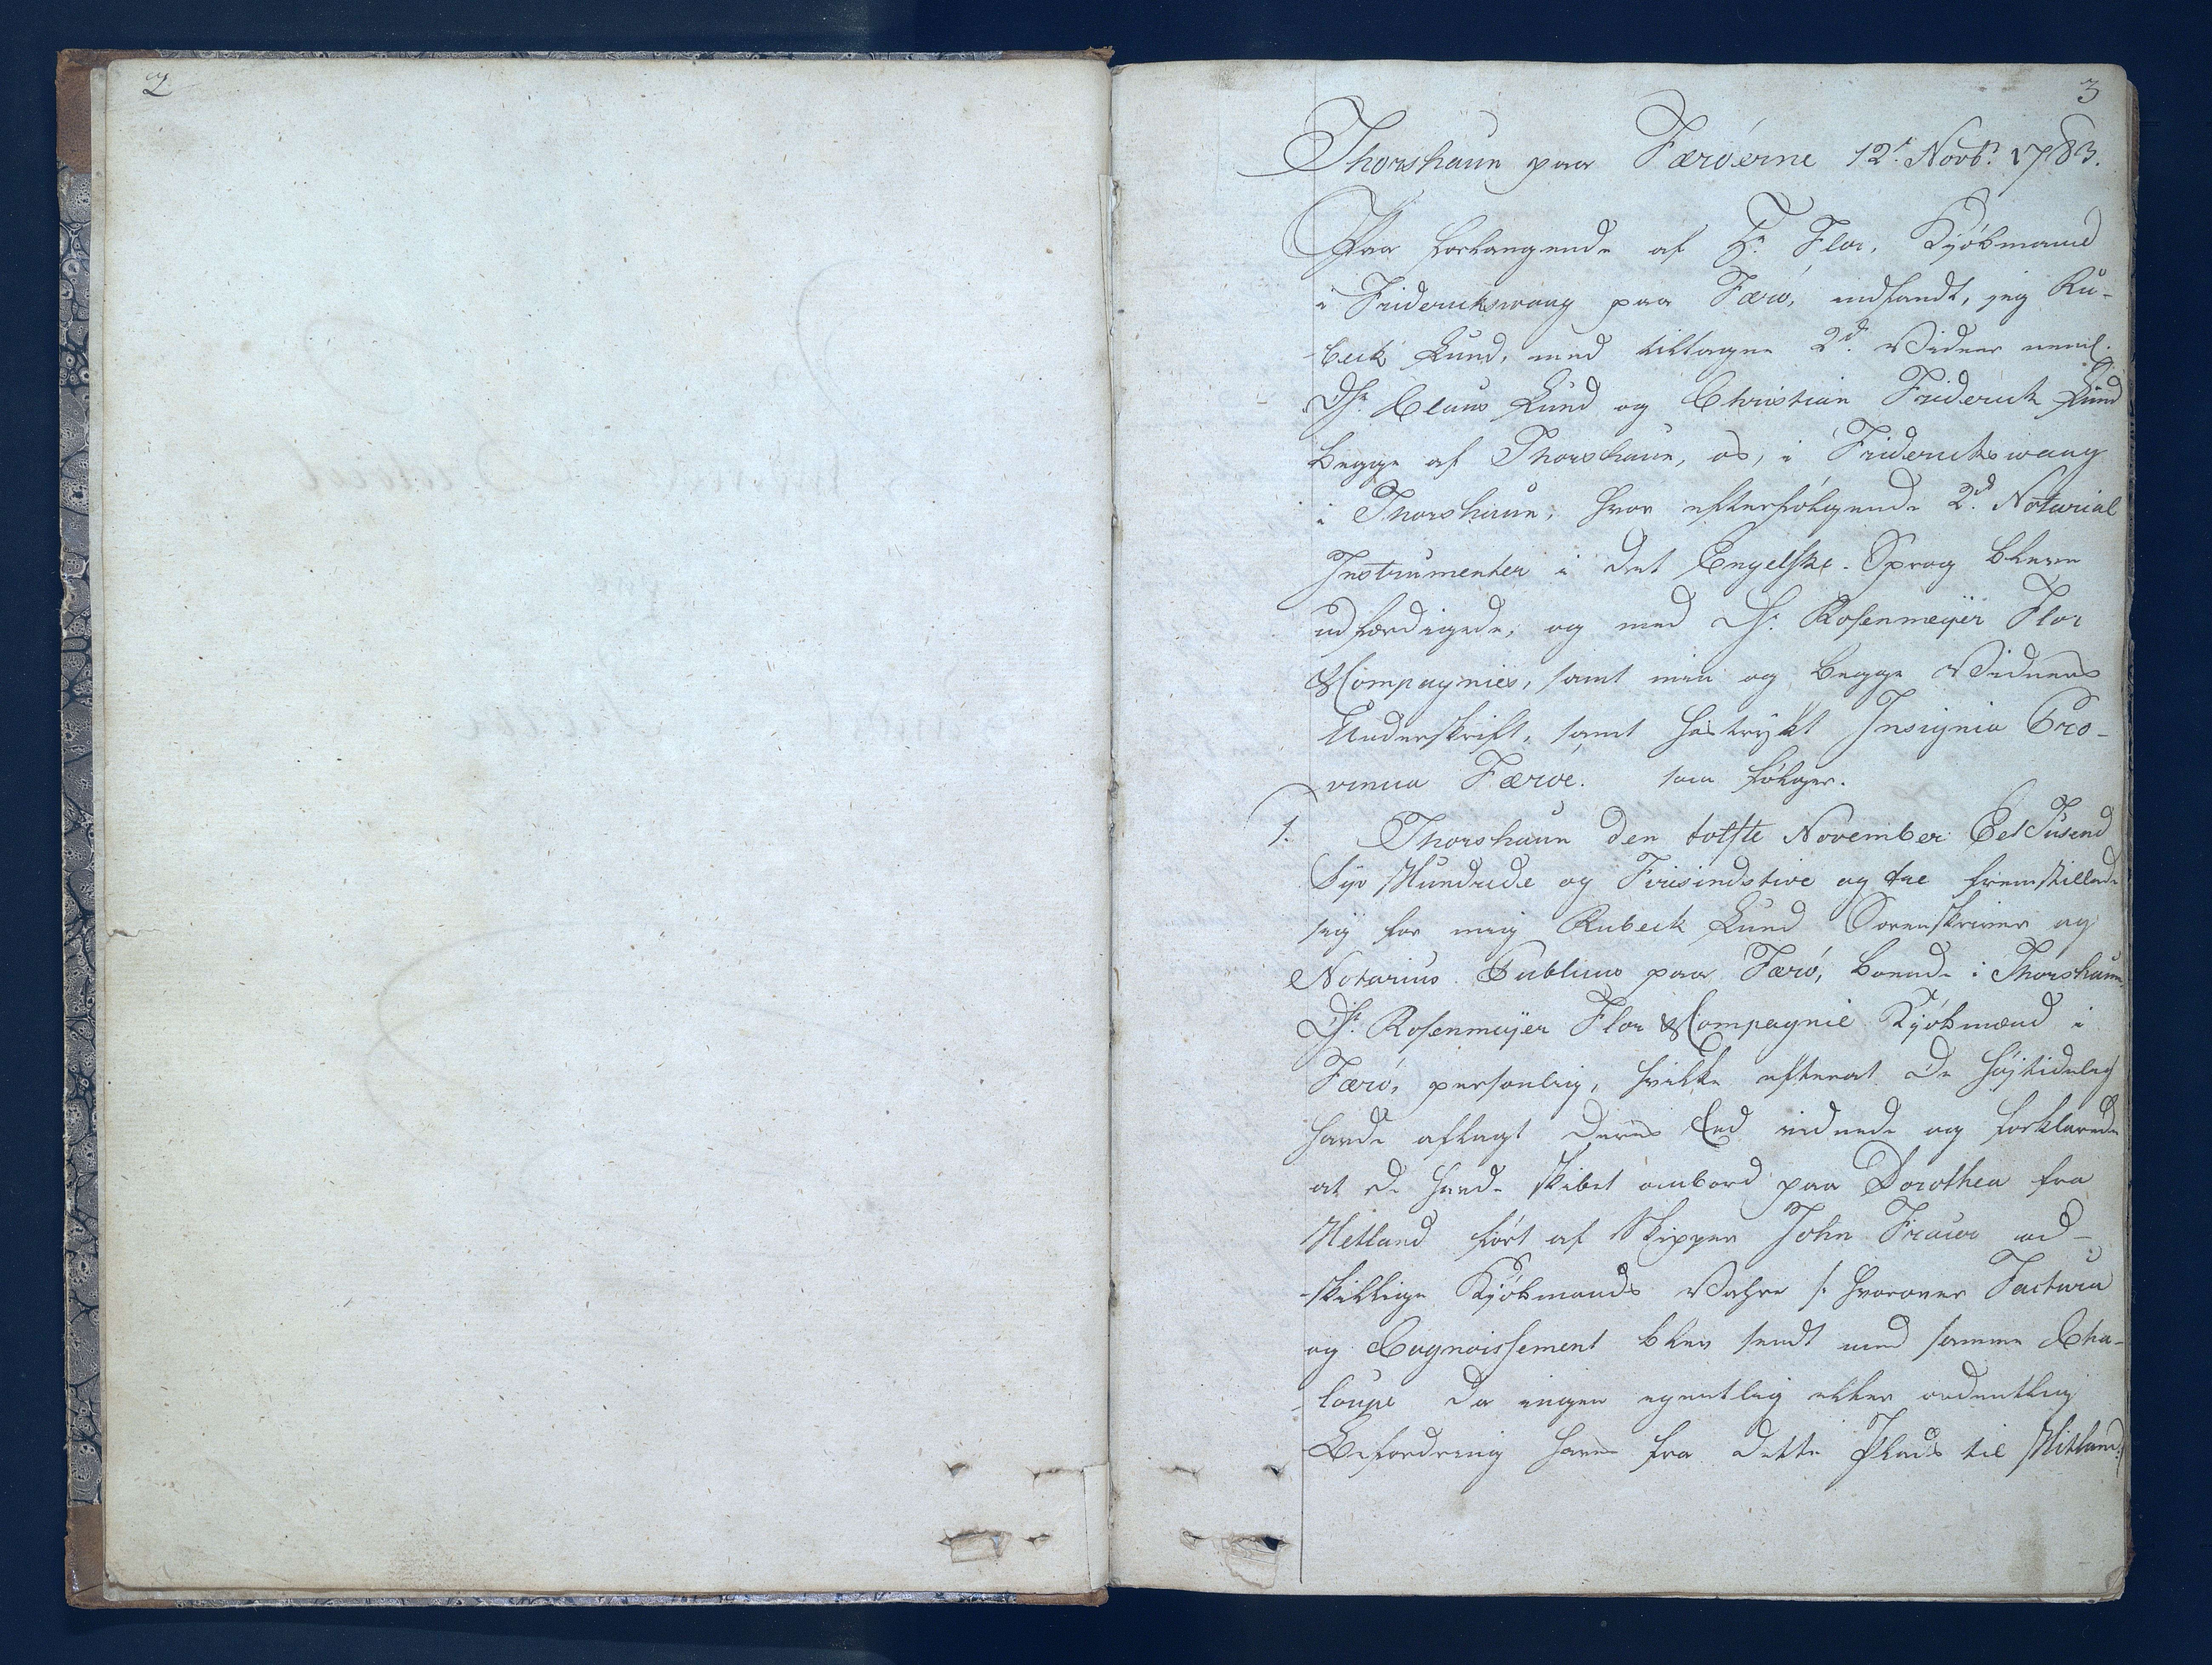 2
3
Thorshaun paa Færöerne 12t. Novbr. 1783.
Paa forlangende af Hr. Flor, Kjöbmand
i Friderichswaag paa Færö, indfandt, jeg Ru-
beck Lund, med tiltagne 2d. Vidner nemlf.
Dhr. Claus Lund og Christian Friderich Lund
begge af Thorshaun, os, i Friderichswaag
i Thorshaun, hvor efterfölgende 2d. Notarial
Instrumenter i det Engelske Sprog bleve
udfærdigede, og med Dhr. Rosenmeyer Flor
& Compagnies, samt min og begge Vidners
Underskrift, samt hostrykt Insignia Pro-
vincia Færoe. som fölger.
1. Thorshaun den tolfte November Eet Tusend
Syv Hundrede og Firesindstive og tre fremstillede
sig for mig Rubeck Lund Sorenskriver og
Notarius Publicus paa Færö, boende i Thorshaun,
Dhr. Rosenmeyer Flor & Compagnie Kjöbmænd i
Færö, personlig, hvilke efterat De höjtidelig
havde aflagt deres Eed vidnede og forklarede
at de havde skibet ombord paa Dorothea fra
Hetland fört af Skipper John Fraser ad-
skillige Kjöbmands Vahre /: hvorover Factura
og Cognoissement blev sendt med samme Cha-
loupe da ingen egentlig eller ordentlig
Befordring haves fra dette Plads til Hitland:/